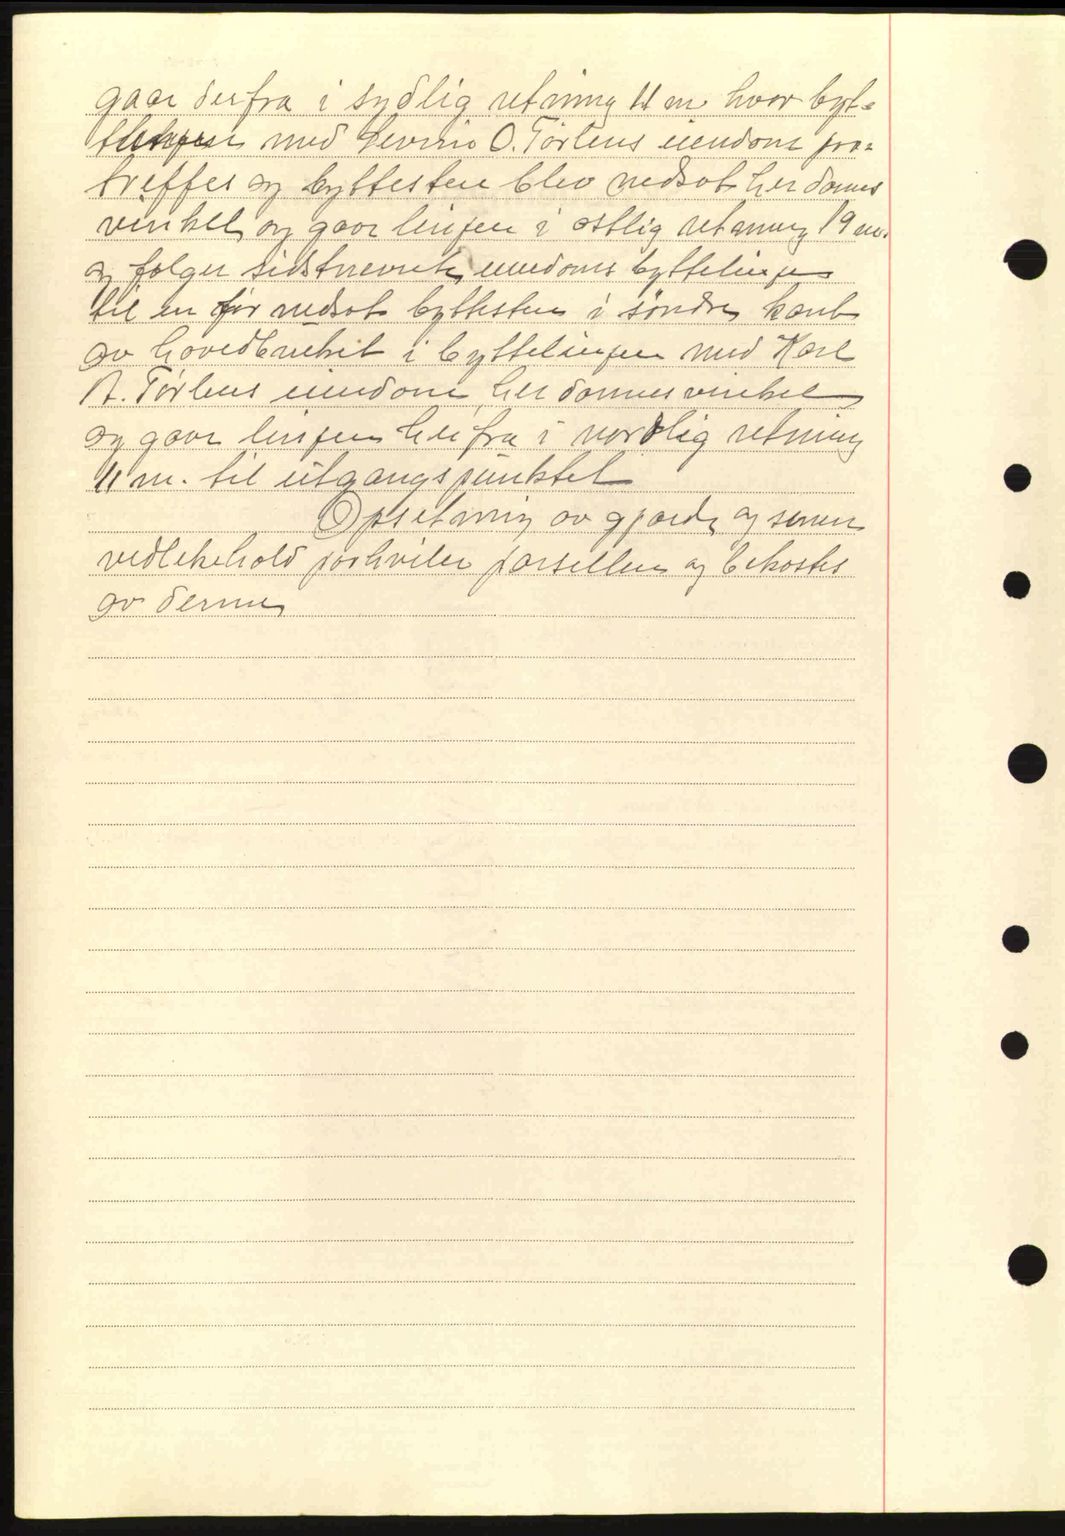 gaar derfra i sydlig retning 11 m hvor byt=
telinjen med Severin O. Torhus eiendom paa=
treffes og byttesten blev nedsat her dannes
vinkel og gaar linjen i østlig retning 19 m.
og følger sidstnevnte eiendoms byttelinje
til en før nedsat byttesten i søndre kant
av hovedbruket i byttelinjen med Karl
A. Torhus eiendom, her dannes vinkel
og gaar linjen herfra i nordlig retning
11 m. til utgangspunktet
Opsetning av gjærde og senere
vedlikehold paahviler parsellen og bekostes
av denne